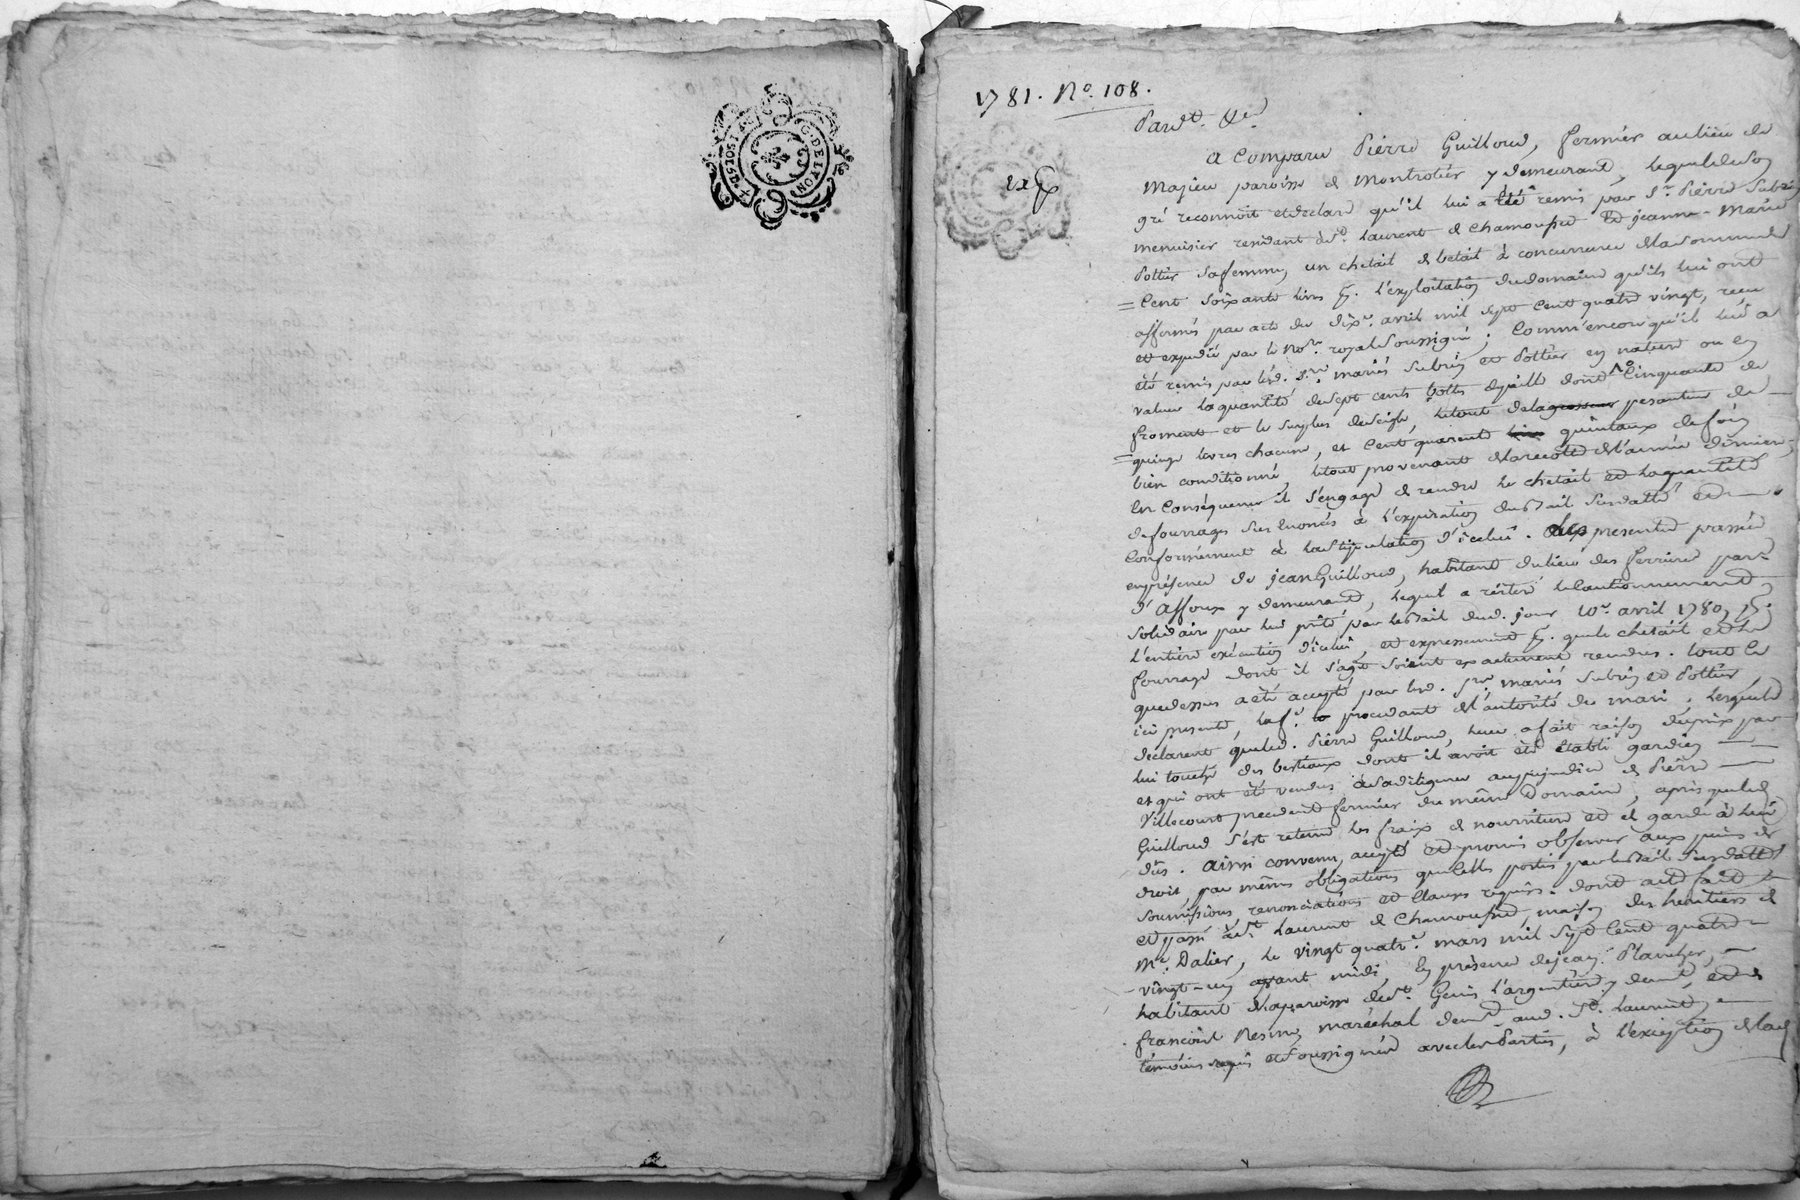 G. DE LYON
1781. No. 108.
Pardt. &c.
A Comparu Pierre Guilloud, fermier au lieu de
Majieu paroisse de Montrotier y demeurant, lequel de son
gré reconnoit et declare qu'il lui a été remis par Sr. Pierre Subrin
menuisier residant à St. Laurent de Chamousset Et jeanne-Marie
Pottier sa femme, un chetail de betail à concurrence de la somme de
= Cent soixante livres pr. l'exploitation du domaine qu'ils lui ont
affermés par acte du dixe. avril mil sept cent quatre vingt, reçu
et expedié par le Nore. royal soussigné; Comm'encor qu'il lui a
été remis par lesd. Srs. mariés Subrin et Pottier en nature ou en
valeur la quantité de sept cents bottes de paille dont Cinquante de
froment et le surplus de seigle, le tout de la pesanteur de
= quinze livres chacune, et Cent quarente quintaux de foin
bien conditionné, le tout provenant de la recolte de l'année derniere;
En Conséquence il s'engage de rendre le chetail et la quantité
de fourrages sus énoncés à l'expiration du bail susdatté et
Conformément à la stipulation d'icelui. Les presentes passées
en présence de jean Guilloud, habitant du lieu des ferrieres parsse.
d'Affoux y demeurant, lequel a réitéré le Cautionnement
solidaire par lui prêté par le bail dud. jour 10e. avril 1780, pr.
l'entiere exécution d'icelui, et expressement pr. que le chetail et le
fourrage dont il s'agit soient exactement rendus. tout ce
que dessus a été accepté par lesd. Srs. mariés Subrin et Pottier,
ici presents, la fe. procedant de l'autorité du mari; lesquels
déclarent que led. Pierre Guilloud, leur a fait raison du prix par
lui touché des bestiaux dont il avoit été établi gardien
et qui ont été vendus à sa diligence au prejudice de Pierre
Villecourt precedent fermier du même Domaine, après que led.
Guilloud s'est retenu les fraix de nourriture et de garde à lui
dûs. Ainsi convenu, accepté et promis observer aux peines de
droit, par mêmes obligations que celles portés par le bail susdatté
soumissions, renonciations et Clauses requises. dont acte fait
et passé à St. Laurent de Chamousset, maison des heritiers de
Me. Dalier, le vingt quatre. mars mil sept cent quatre
vingt-un avant midi, En présence de jean Planchet,
habitant de la paroisse de St. Genis l'argentiere y demt. et de
françois Resin, maréchal demt. aud. St. Laurent,
témoins requis et soussignés avec les Parties, à l'exception de lad.